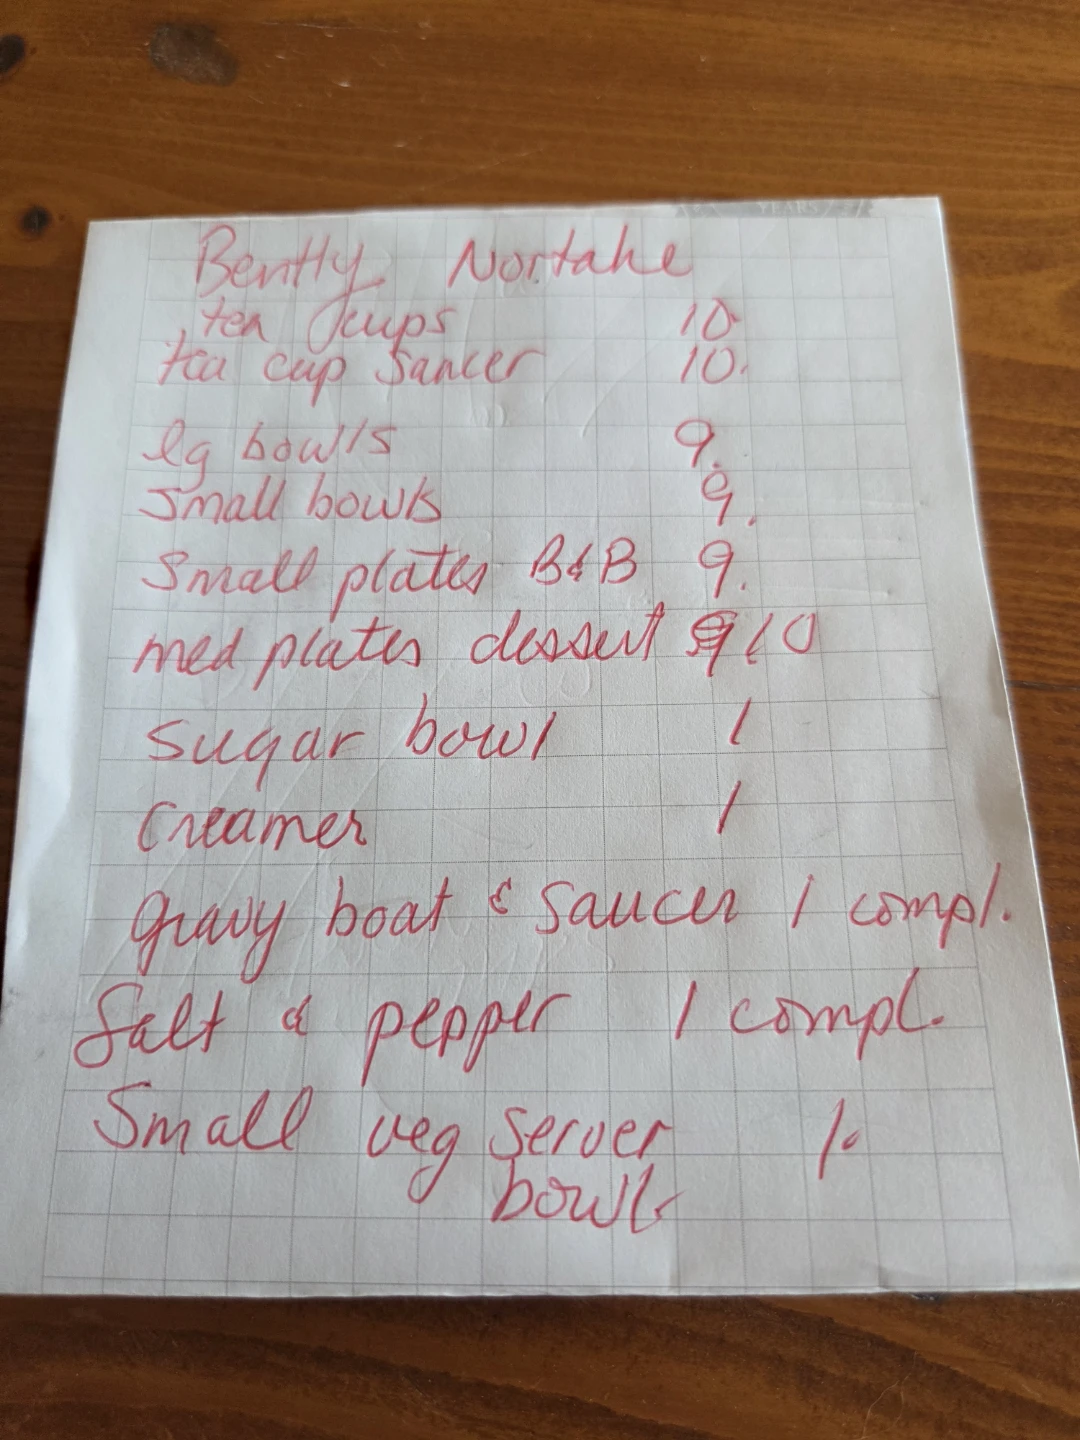 Bently Nortake
tea cups 10
tea cup Saucer 10.
lg bowls 9.
Small bowls 9.
Small plates B&B 9.
med plates dessert 10
Sugar bowl 1
Creamer 1
gravy boat & Saucer 1 compl.
Salt & pepper 1 compl.
Small veg server 1.
bowls